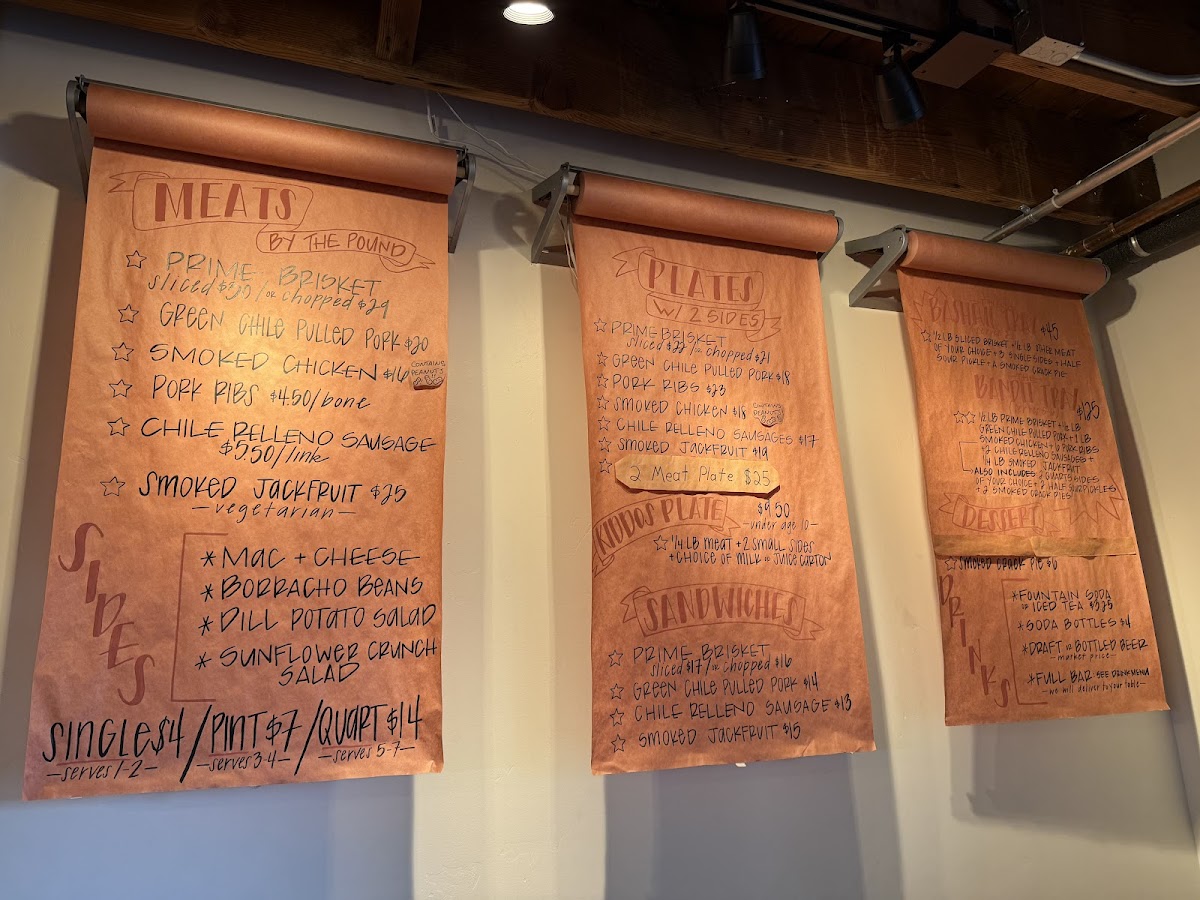 MEATS
BY THE POUND
☆ PRIME BRISKET
sliced $30/or chopped $29
☆ GREEN CHILE PULLED PORK $20
☆ SMOKED CHICKEN $16
CONTAINS
PEANUTS
☆ PORK RIBS $4.50/bone
☆ CHILE RELLENO SAUSAGE
$5.50/link
☆ SMOKED JACKFRUIT $25
—vegetarian—
SIDES
* MAC + CHEESE
* BORRACHO BEANS
* DILL POTATO SALAD
* SUNFLOWER CRUNCH
SALAD
SINGLE $4 / PINT $7 / QUART $14
—serves 1-2— —serves 3-4— —serves 5-7—
PLATES
W/ 2 SIDES
☆ PRIME BRISKET
sliced $22/or chopped $21
☆ GREEN CHILE PULLED PORK $18
☆ PORK RIBS $23
☆ SMOKED CHICKEN $18
CONTAINS
PEANUTS
☆ CHILE RELLENO SAUSAGES $17
☆ SMOKED JACKFRUIT $19
☆ 2 Meat Plate $25
KIDDOS PLATE
$9.50
—under age 10—
☆ 1/4 LB MEAT + 2 SMALL SIDES
+ CHOICE OF MILK or JUICE CARTON
SANDWICHES
☆ PRIME BRISKET
sliced $17/or chopped $16
☆ GREEN CHILE PULLED PORK $14
☆ CHILE RELLENO SAUSAGE $13
☆ SMOKED JACKFRUIT $15
$45
☆ 1/2 LB SLICED BRISKET + 1/2 LB OTHER MEAT
OF YOUR CHOICE + 3 SINGLE SIDES + HALF
SOUR PICKLE + A SMOKED CRACK PIE
BANDIT TRAY
$125
☆☆ 1/2 LB PRIME BRISKET + 1/2 LB
GREEN CHILE PULLED PORK + 1 LB
SMOKED CHICKEN + 6 PORK RIBS
+ 2 CHILE RELLENO SAUSAGES +
1/4 LB SMOKED JACKFRUIT
ALSO INCLUDES: 2 QUARTS SIDES
OF YOUR CHOICE + 2 HALF SOUR PICKLES
+ 2 SMOKED CRACK PIES
DESSERT
☆ SMOKED CRACK PIE $6
DRINKS
* FOUNTAIN SODA
or ICED TEA $3.25
* SODA BOTTLES $4
* DRAFT or BOTTLED BEER
—market price—
* FULL BAR: SEE DRINK MENU
—we will deliver to your table—